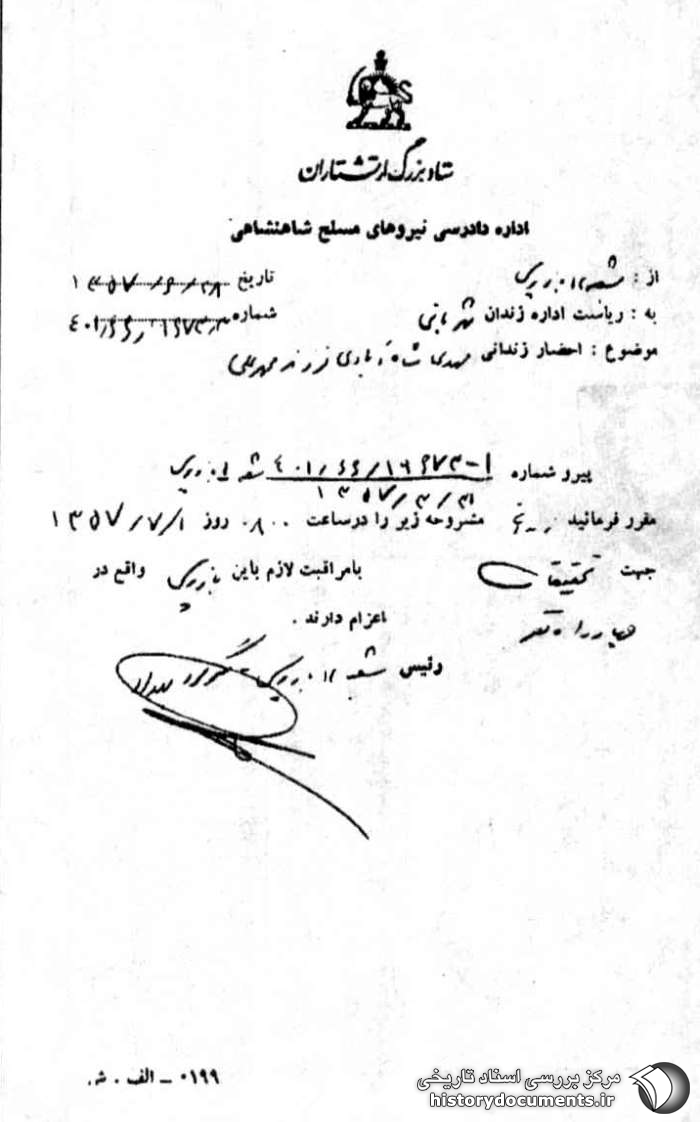 ستاد بزرگ ارتشتاران
اداره دادرسی نیروهای مسلح شاهنشاهی
از : شعبه ۱۲ بازپرسی
تاریخ ۱۳۵۷/۶/۲۸
به : ریاست اداره زندان شهربانی
شماره
موضوع : احضار زندانی مهدی شاه آبادی فرزند محمدعلی
پیرو شماره شعبه بازپرسی
مقرر فرمائید مشروحه زیر را درساعت ۰۸۰۰ روز ۱۳۵۷/۷/۱
جهت تحقیقات بامراقبت لازم باین بازپرسی واقع در
چهارراه قصر اعزام دارند .
رئیس شعبه ۱۲ بازپرسی
۰۱۹۹ – الف . ش.
مرکز بررسی اسناد تاریخی
historydocuments.ir